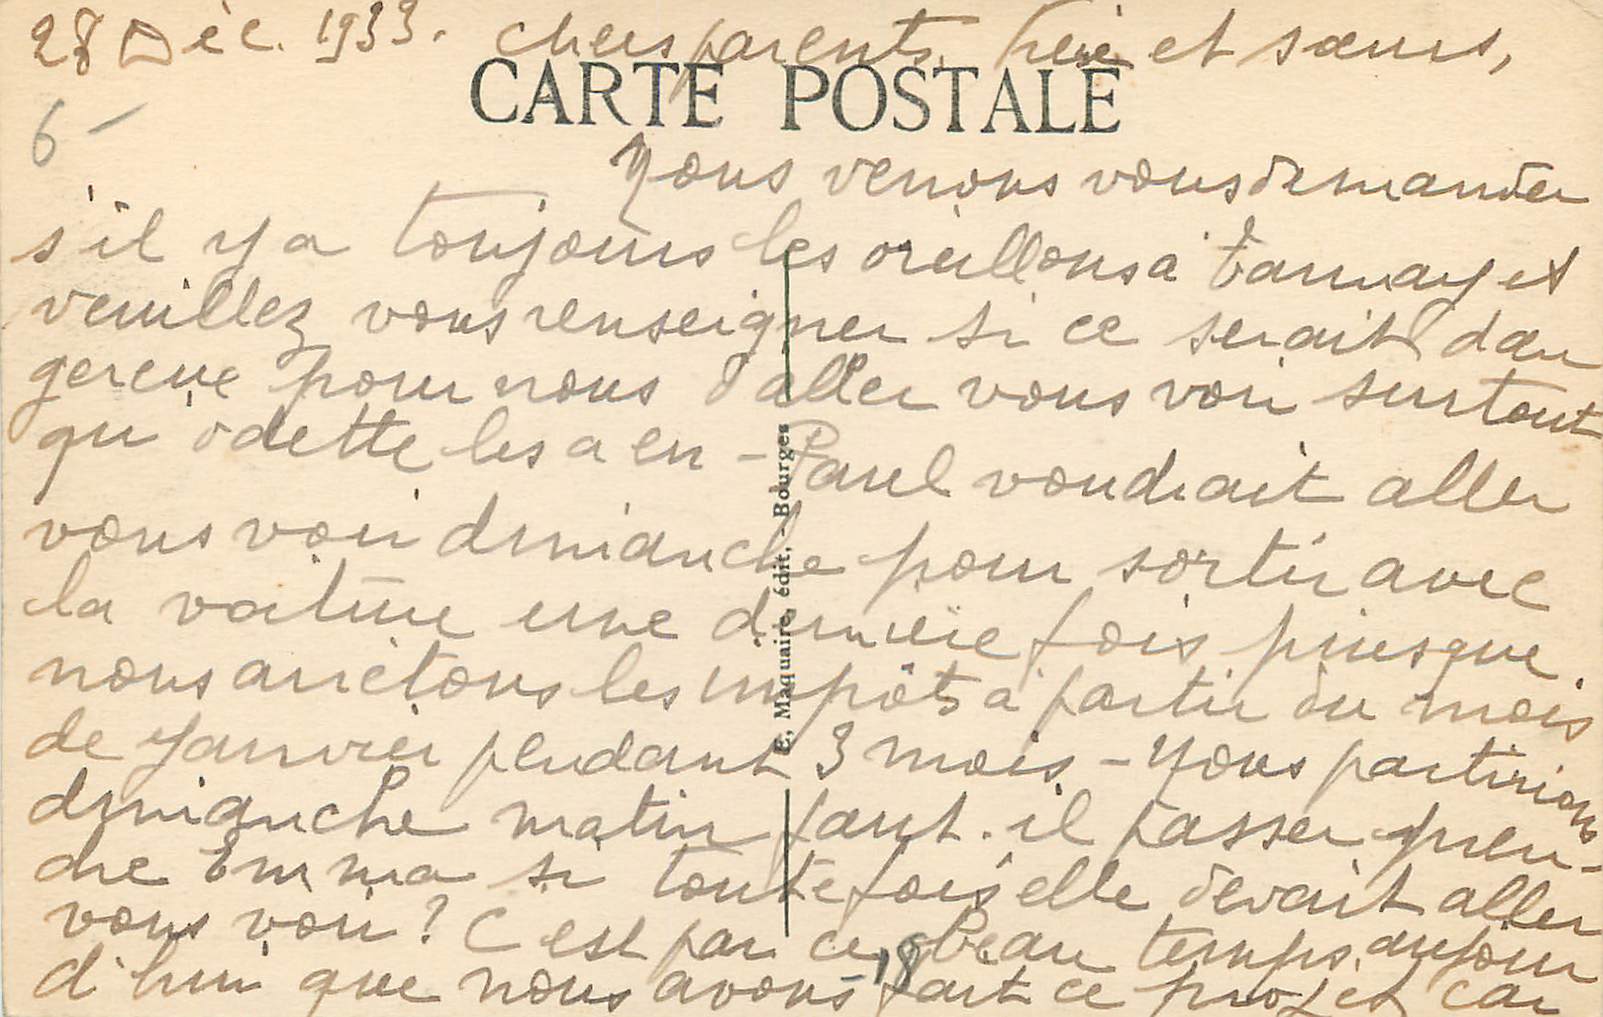 28 Déc. 1933. chers parents, frère et sœurs,
CARTE POSTALE
6 -
Nous venons vous demander
s'il y a toujours les oreillons à Tannay et
veuillez vous renseigner si ce serait dan
gereux pour nous d'aller vous voir surtout
qu'odette les a eu - Paul voudrait aller
vous voir dimanche pour sortir avec
la voiture une dernière fois puisque
nous arrêtons les impôts à partir du mois
de Janvier pendant 3 mois - Nous partirions
dimanche matin faut-il passer pren-
dre Emma si toutefois elle devait aller
vous voir? C'est par ce beau temps aujour
d'hui que nous avons fait ce projet car
E. Maquaire, édit., - Bourges
18